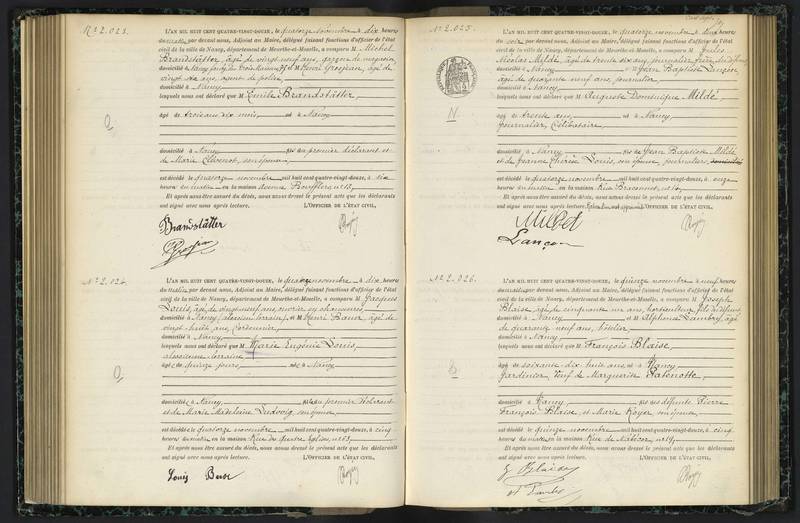 No 2.023.
L'AN MIL HUIT CENT QUATRE-VINGT-DOUZE, le quatorze novembre à dix heures
du matin par devant nous, Adjoint au Maire, délégué faisant fonctions d'officier de l'état
civil de la ville de Nancy, département de Meurthe-et-Moselle, a comparu M Michel
Brandstätter, âgé de vingt neuf ans, garçon de magasin,
domicilié à Nancy et M Henri Grosjean, âgé de
vingt six ans, agent de police,
domicilié à Nancy
lesquels nous ont déclaré que M Emile Brandstätter,
âgé de trois ans dix mois, né à Nancy
domicilié à Nancy fils du premier déclarant et
de Marie Thévenot, son épouse,
est décédé le quatorze novembre mil huit cent quatre-vingt-douze, à dix
heures du matin en la maison Avenue Boufflers no 13,
Et après nous être assuré du décès, nous avons dressé le présent acte que les déclarants
ont signé avec nous après lecture. L'OFFICIER DE L'ÉTAT CIVIL,
Brandstätter
Grosjean
No 2.024.
L'AN MIL HUIT CENT QUATRE-VINGT-DOUZE, le quatorze novembre à dix heures
du matin par devant nous, Adjoint au Maire, délégué faisant fonctions d'officier de l'état
civil de la ville de Nancy, département de Meurthe-et-Moselle, a comparu M Jacques
Louis, âgé de vingt neuf ans, ouvrier en chaussures
domicilié à Nancy (alsacien lorrain) et M Henri Baur, âgé de
vingt huit ans, Cordonnier,
domicilié à Nancy
lesquels nous ont déclaré que M Marie Eugénie Louis,
alsacienne lorraine
âgée de quinze jours, née à Nancy
domicilié à Nancy, fille du premier déclarant
et de Marie Madeleine Ludwig son épouse,
est décédée le quatorze novembre mil huit cent quatre-vingt-douze, à cinq
heures du matin en la maison Rue des quatre églises, no 53,
Et après nous être assuré du décès, nous avons dressé le présent acte que les déclarants
ont signé avec nous après lecture. L'OFFICIER DE L'ÉTAT CIVIL,
Louis Baur
No 2.025.
L'AN MIL HUIT CENT QUATRE-VINGT-DOUZE, le quatorze novembre à deux heures
du soir par devant nous, Adjoint au Maire, délégué faisant fonctions d'officier de l'état
civil de la ville de Nancy, département de Meurthe-et-Moselle, a comparu M Jules
Nicolas Mildé, âgé de trente six ans, journalier, frère du défunt
domicilié à Nancy et M Jean Baptiste Lançon
âgé de quarante neuf ans, journalier,
domicilié à Nancy,
lesquels nous ont déclaré que M Auguste Dominique Mildé,
âgé de trente ans, né à Nancy,
journalier, Célibataire,
domicilié à Nancy fils de Jean Baptiste Mildé
et de Jeanne Thérèse Louis, son épouse, journaliers,
est décédé le quatorze novembre mil huit cent quatre-vingt-douze, à onze
heures du matin en la maison Rue Braconnot, no 10,
Et après nous être assuré du décès, nous avons dressé le présent acte que les déclarants
ont signé avec nous après lecture. L'OFFICIER DE L'ÉTAT CIVIL,
Lançon
No 2.026.
L'AN MIL HUIT CENT QUATRE-VINGT-DOUZE, le quinze novembre à neuf heures
du matin par devant nous, Adjoint au Maire, délégué faisant fonctions d'officier de l'état
civil de la ville de Nancy, département de Meurthe-et-Moselle, a comparu M Joseph
Blaise, âgé de cinquante un ans, horticulteur, fils du défunt
domicilié à Nancy et M Alphonse Lambry, âgé
de quarante neuf ans, hôtelier
domicilié à Nancy
lesquels nous ont déclaré que M François Blaise,
âgé de soixante dix huit ans né à Nancy
Jardinier, Veuf de Marguerite
domicilié à Nancy, fils des défunts Pierre
François Blaise et Marie Royer son épouse,
est décédé le quinze novembre mil huit cent quatre-vingt-douze, à cinq
heures du matin en la maison Rue de Malzéville, no 19,
Et après nous être assuré du décès, nous avons dressé le présent acte que les déclarants
ont signé avec nous après lecture. L'OFFICIER DE L'ÉTAT CIVIL,
J Blaise